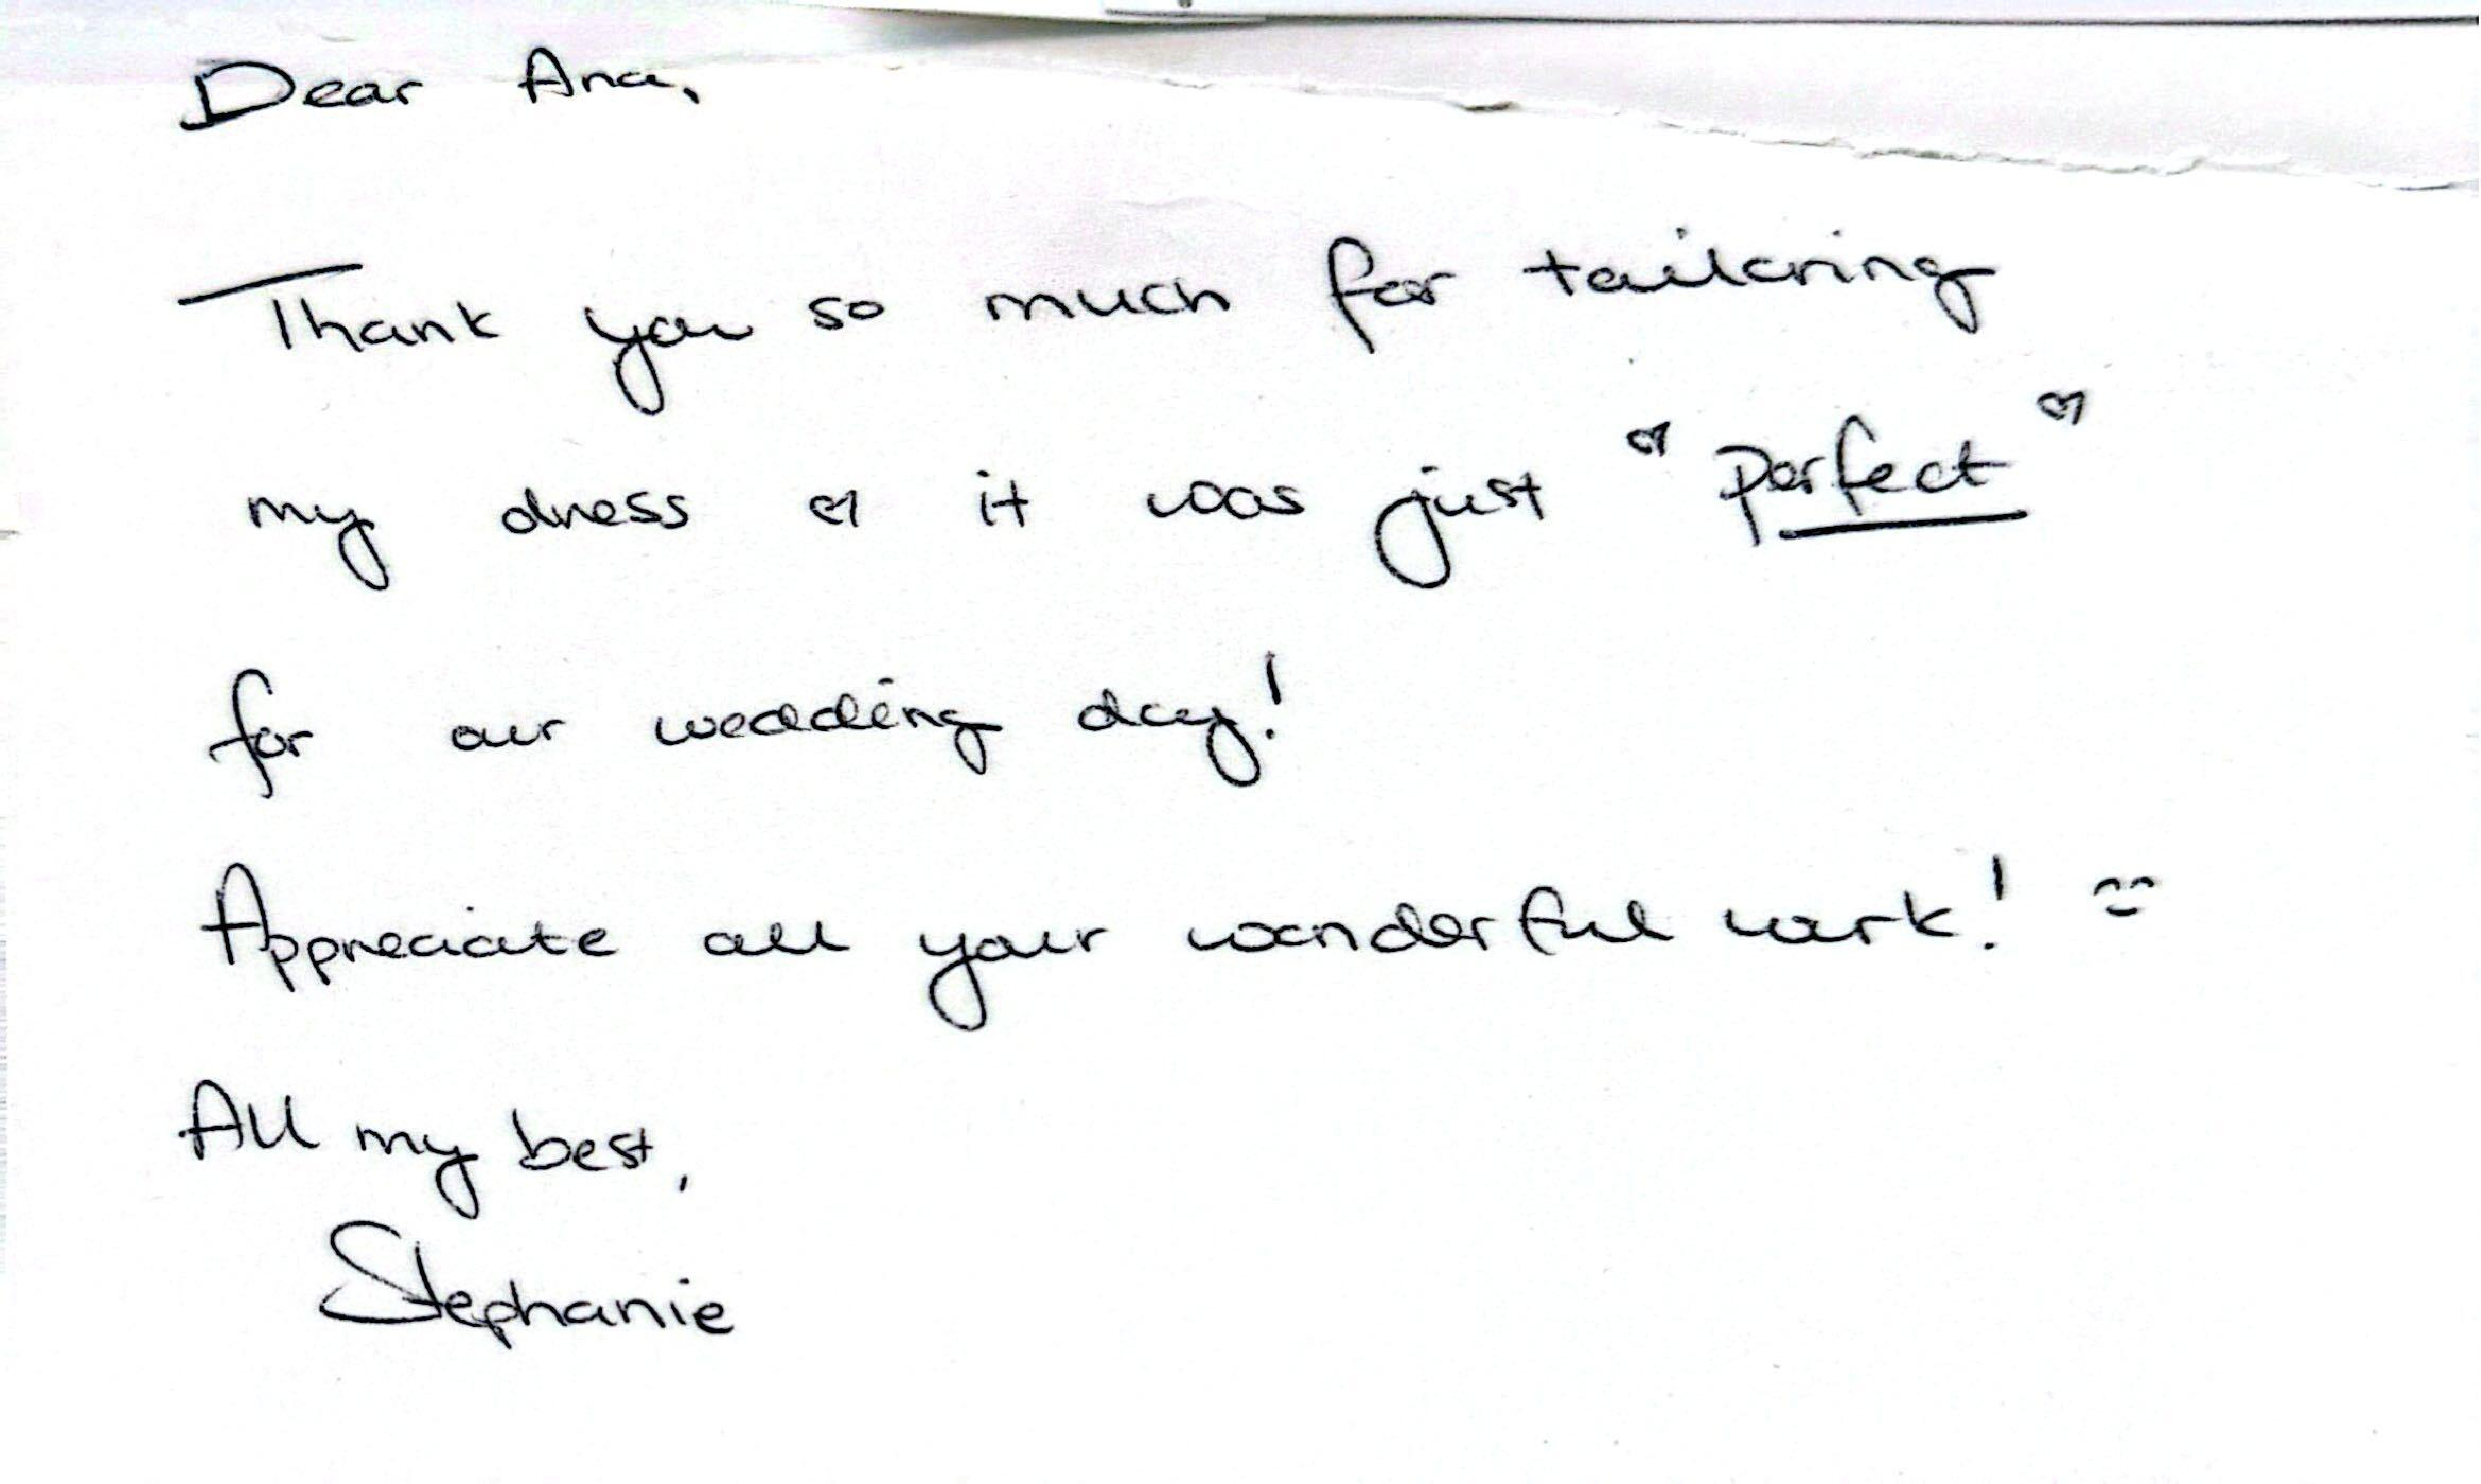 Dear Ana,
Thank you so much for tailoring
my dress ♡ it was just ♡ perfect ♡
for our wedding day!
Appreciate all your wonderful work! ^^
All my best,
Stephanie